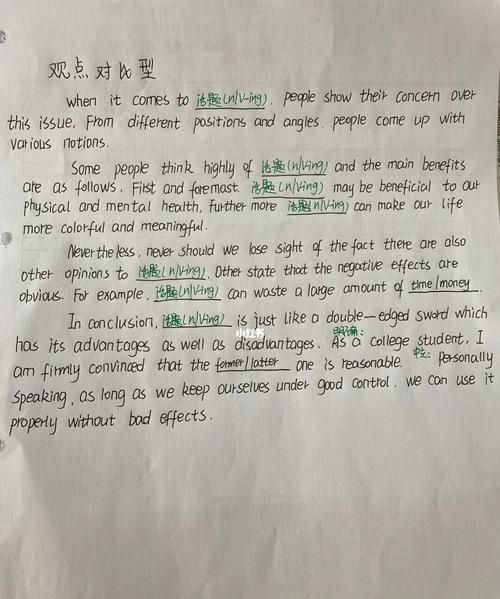 观点对比型
When it comes to 话题(n/V-ing), people show their concern over
this issue. From different positions and angles, people come up with
various notions.
Some people think highly of 话题(n/Ving) and the main benefits
are as follows. First and foremost, 话题(n/Ving) may be beneficial to our
physical and mental health, Further more 话题(n/Ving) can make our life
more colorful and meaningful.
Never the less, never should we lose sight of the fact there are also
other opinions to 话题(n/Ving). Other state that the negative effects are
obvious. For example, 话题(n/Ving) can waste a large amount of time/money.
In conclusion, 话题(n/Ving) is just like a double-edged sword which
has its advantages as well as disadvantages. 明确: As a college student, I
am firmly convinced that the former/latter one is reasonable. 中立: Personally
speaking, as long as we keep ourselves under good control, we can use it
properly without bad effects.
小红书